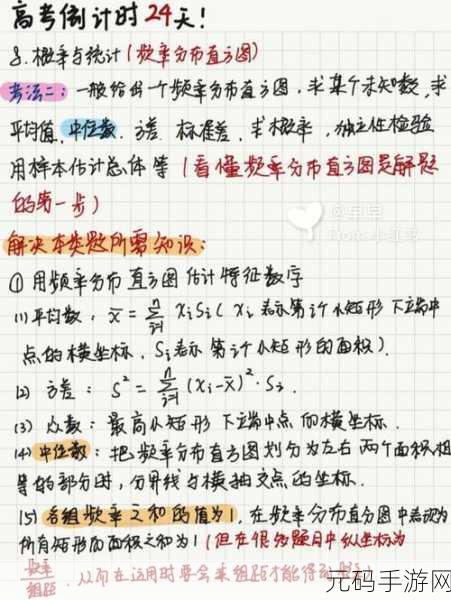 高考倒计时24天!
8.概率与统计(频率分布直方图)
考法二:一般给出一个频率分布直方图,求某个未知数,求
平均值,中位数,方差,标准差,求概率,独立性检验
用样本估计总体等(看懂频率分布直方图是解题
的第一步)
解决本类题所需知识:
①用频率分布直方图估计特征数字
(1)平均数,x̄=∑ⁿᵢ₌₁ xᵢSᵢ(xᵢ表示第i个小矩形下端中
点的横坐标,Sᵢ表示第i个小矩形的面积).
(2)方差:S²=∑ⁿᵢ₌₁(xᵢ-x̄)²·Sᵢ.
(3)众数:最高小矩形下端中点的横坐标.
(4)中位数:把频率分布直方图划分为左右两个面积相
等的部分时,分界线与横轴交点的坐标.
(5)各组频率之和的值为1,在频率分布直方图中表现为
所有矩形的面积之和为1(但在很多题目中纵坐标为
频率/组距,从而在运用时要乘组距才能得
元码手游网